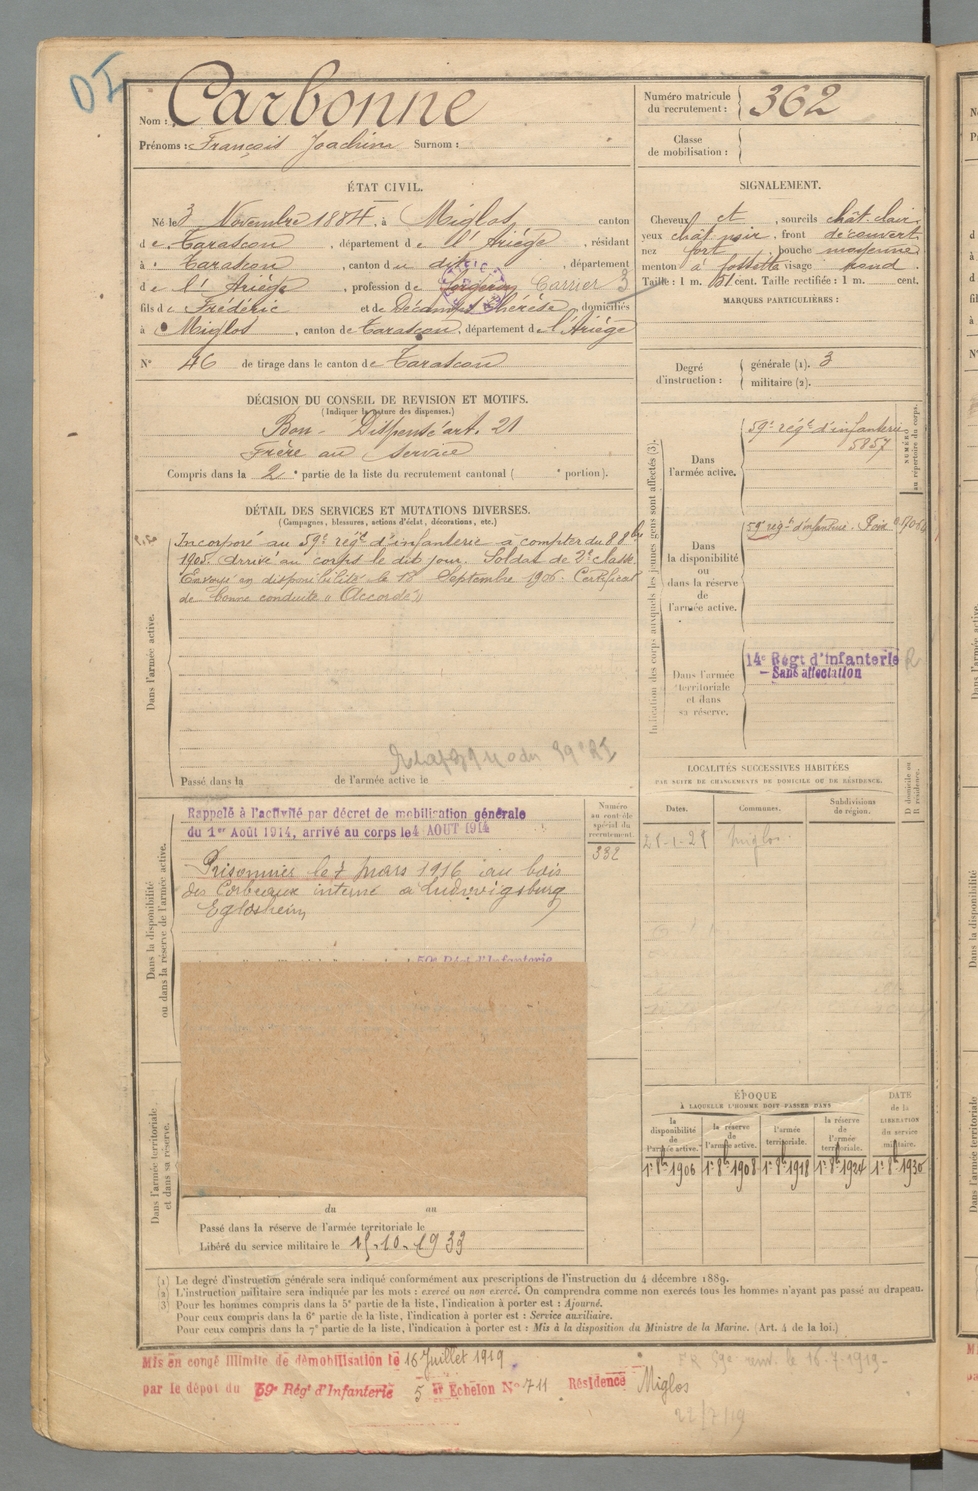 DI
Nom : Carbonne
Prénoms : François Joachim Surnom :
Numéro matricule du recrutement : 362
Classe de mobilisation :
ÉTAT CIVIL.
Né le 3 Novembre 1884, à Miglos, canton
de Tarascon, département de l'Ariège, résidant
à Tarascon, canton du dit, département
de l'Ariège, profession de Forgeron Carrier 3
fils de Frédéric et de Décamps Thérèse, domiciliés
à Miglos, canton de Tarascon, département de l'Ariège
N° 46 de tirage dans le canton de Tarascon
SIGNALEMENT.
Cheveux et, sourcils chât. clair,
yeux chât noir, front découvert,
nez fort, bouche moyenne,
menton à fossette visage rond.
Taille : 1 m. 61 cent. Taille rectifiée : 1 m. cent.
MARQUES PARTICULIÈRES :
Degré d'instruction : générale (1). 3
militaire (2).
DÉCISION DU CONSEIL DE REVISION ET MOTIFS.
(Indiquer la nature des dispenses.)
Bon - Dispensé art. 21
Frère au service
Compris dans la 2e partie de la liste du recrutement cantonal ( e portion).
DÉTAIL DES SERVICES ET MUTATIONS DIVERSES.
(Campagnes, blessures, actions d'éclat, décorations, etc.)
Dans l'armée active.
Incorporé au 59e régt d'infanterie à compter du 8 8bre
1905. Arrivé au corps le dit jour. Soldat de 2e classe.
Envoyé en disponibilité le 18 Septembre 1906. Certificat
de bonne conduite « Accordé »
Passé dans la de l'armée active le
Indication des corps auxquels les jeunes gens sont affectés (3).
NUMÉRO au répertoire du corps.
Dans l'armée active.
59e régt d'infanterie
5857
Dans la disponibilité ou dans la réserve de l'armée active.
59e régt d'infanterie - Foix
Dans l'armée territoriale et dans sa réserve.
14e Régt d'infanterie R
- Sans affectation
Dans la disponibilité ou dans la réserve de l'armée active.
Rappelé à l'activité par décret de mobilisation générale
du 1er Août 1914, arrivé au corps le 4 AOUT 1914
Prisonnier le 7 mars 1916 au bois
des Corbeaux interné à Ludwigsburg
Eglosheim
59e Régt d'Infanterie
Numéro au contrôle spécial du recrutement.
332
LOCALITÉS SUCCESSIVES HABITÉES
PAR SUITE DE CHANGEMENTS DE DOMICILE OU DE RÉSIDENCE.
D domicile ou R résidence.
Dates. Communes. Subdivisions de région.
21-1-21 Miglos.
ÉPOQUE
À LAQUELLE L'HOMME DOIT PASSER DANS
DATE de la LIBÉRATION du service militaire.
la disponibilité de l'armée active. la réserve de l'armée active. l'armée territoriale. la réserve de l'armée territoriale.
1er 8bre 1906 1er 8bre 1908 1er 8bre 1918 1er 8bre 1924 1er 8bre 1930
Dans l'armée territoriale et dans sa réserve.
du au
Passé dans la réserve de l'armée territoriale le
Libéré du service militaire le 15.10.1933
(1) Le degré d'instruction générale sera indiqué conformément aux prescriptions de l'instruction du 4 décembre 1889.
(2) L'instruction militaire sera indiquée par les mots : exercé ou non exercé. On comprendra comme non exercés tous les hommes n'ayant pas passé au drapeau.
(3) Pour les hommes compris dans la 5e partie de la liste, l'indication à porter est : Ajourné.
Pour ceux compris dans la 6e partie de la liste, l'indication à porter est : Service auxiliaire.
Pour ceux compris dans la 7e partie de la liste, l'indication à porter est : Mis à la disposition du Ministre de la Marine. (Art. 4 de la loi.)
Mis en congé illimité de démobilisation le 16 Juillet 1919
par le dépot du 59e Régt d'Infanterie 5 er Echelon N° 711 Résidence Miglos
59e renv. le 16-7-1919-
22/7/19